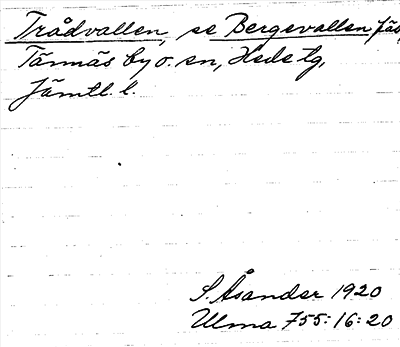 Trådvallen, se Bergevallen fäb
Tännäs by o. sn, Hede tg,
Jämtl. l.
S. Åsander 1920
Ulma 755:16:20